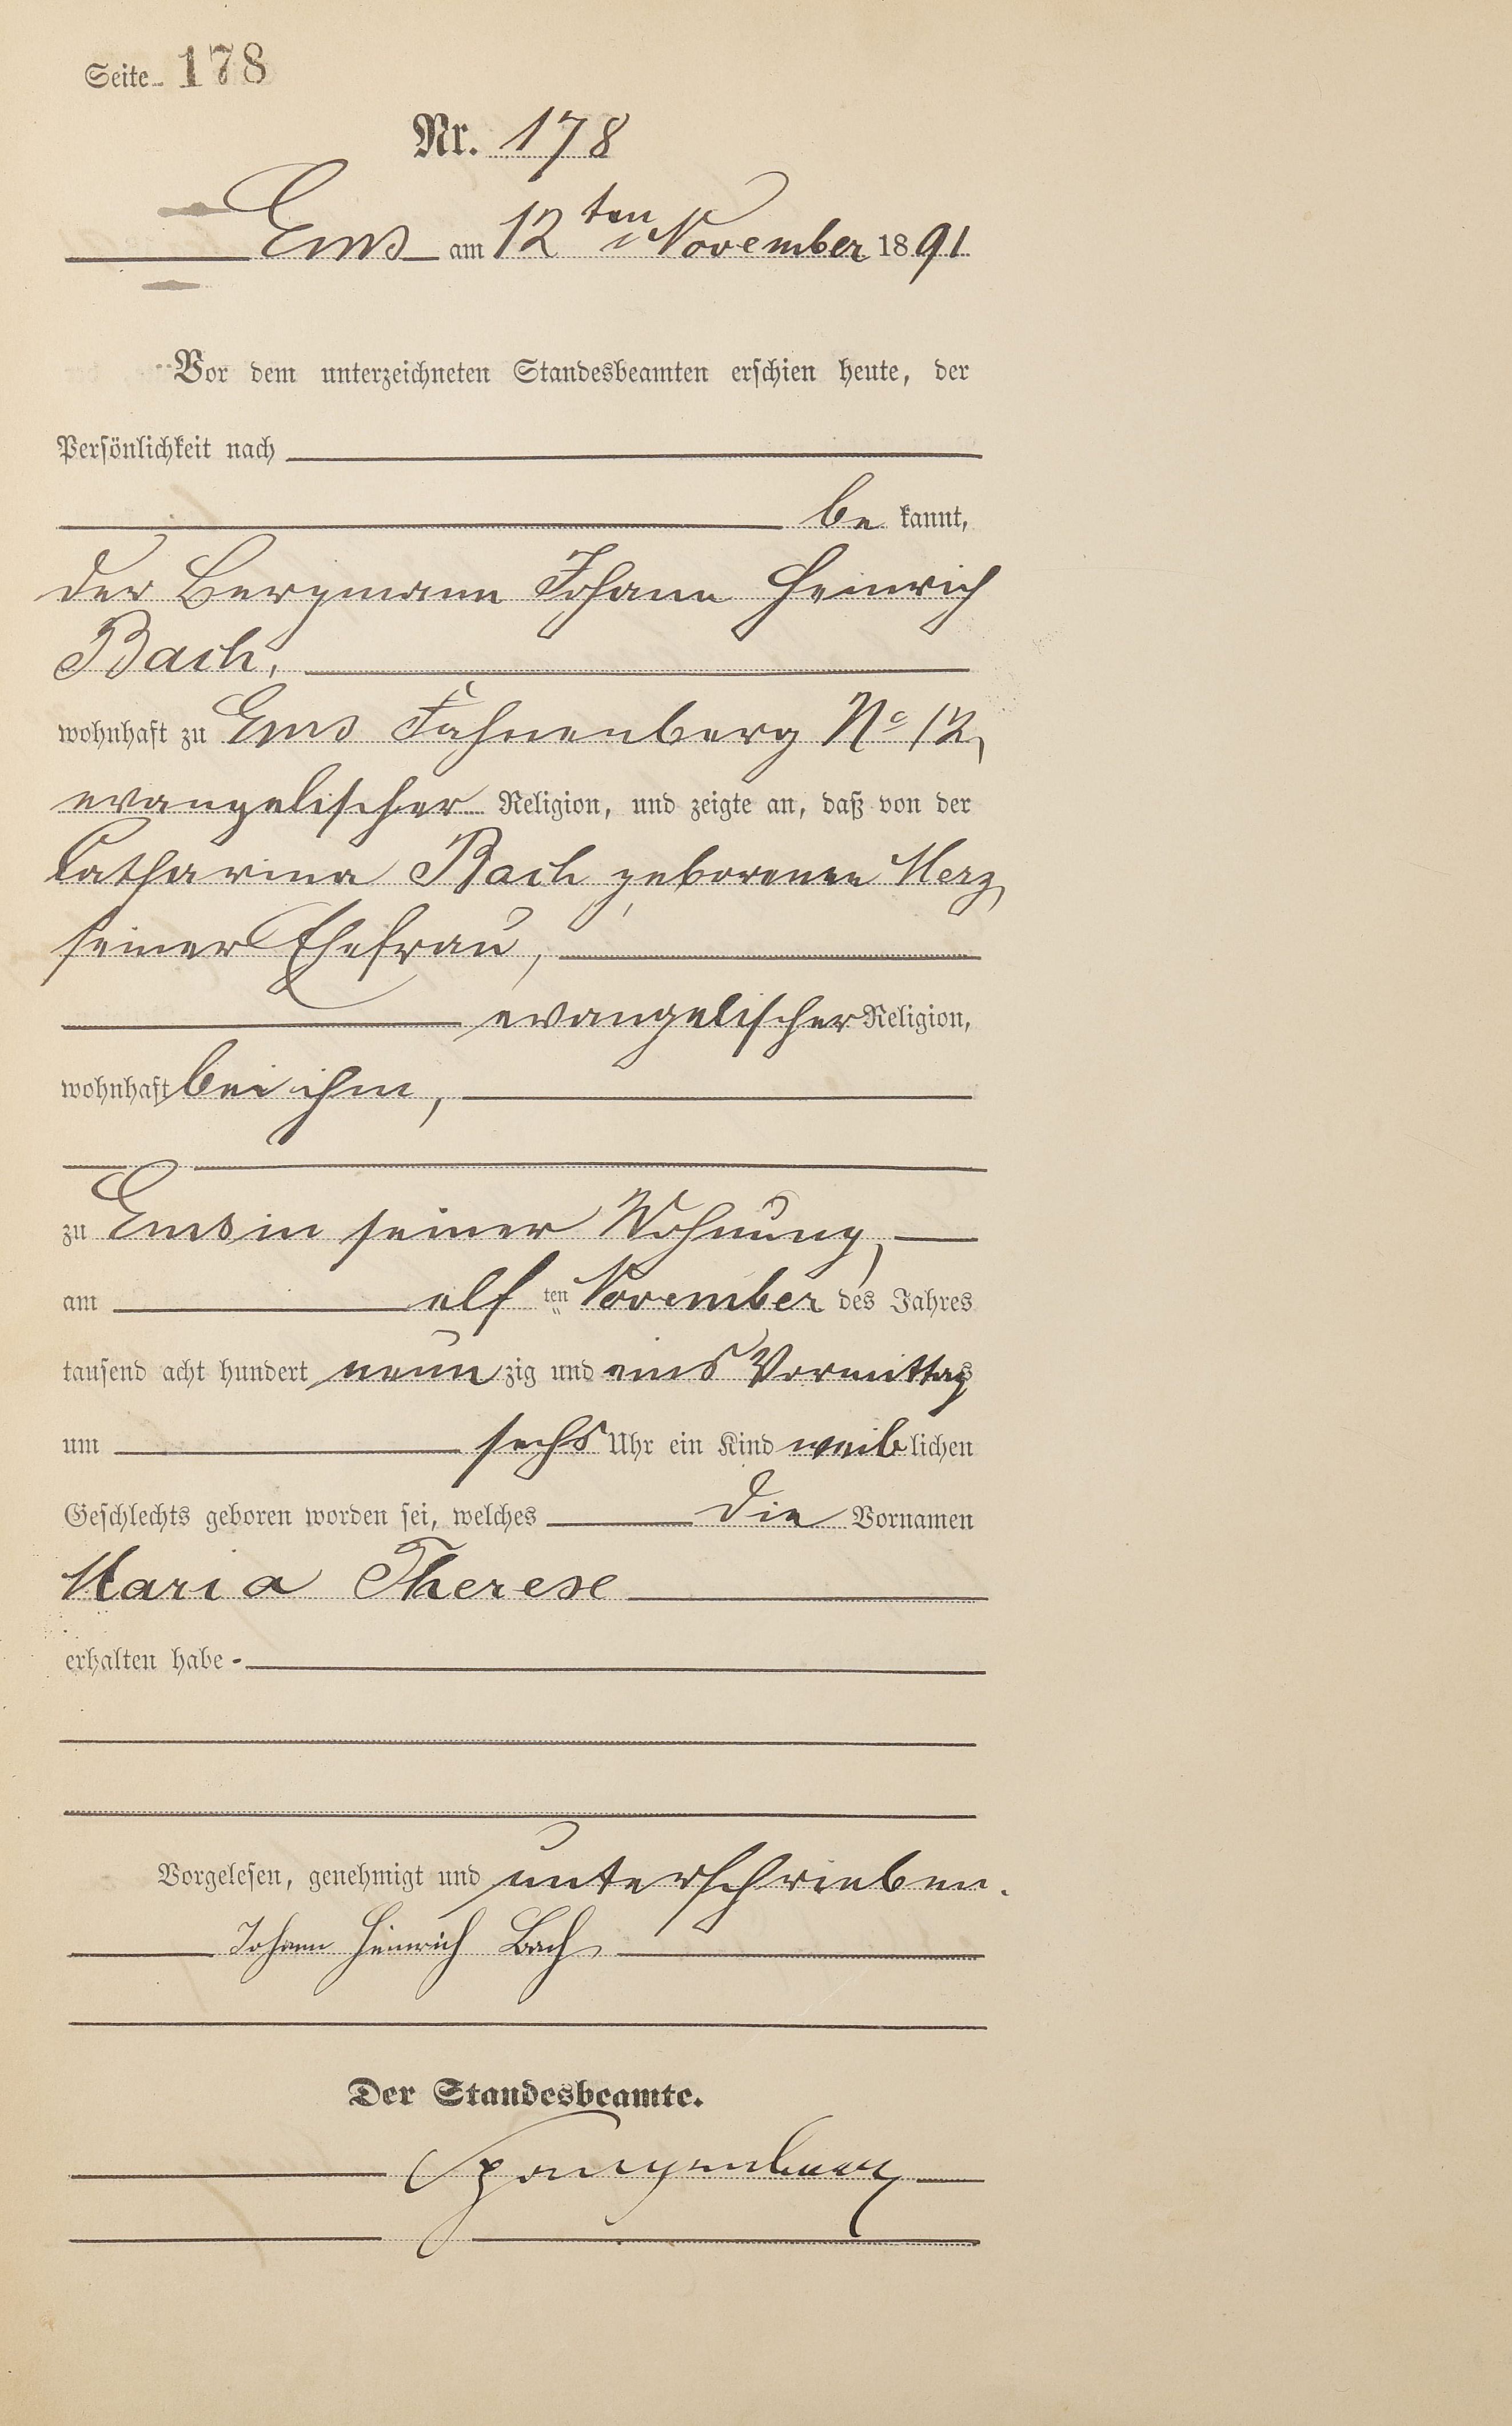 Seite 178
Nr. 178
Ems am 12ten November 1891
Vor dem unterzeichneten Standesbeamten erschien heute, der
Persönlichkeit nach
be kannt,
der Bergmann Johann Heinrich
Bach,
wohnhaft zu Ems Fahnenberg No 12,
evangelischer Religion, und zeigte an, daß von der
Catharina Bach geborenen Merz,
seiner Ehefrau,
evangelischer Religion,
wohnhaft bei ihm,
zu Ems in seiner Wohnung,
am elf ten November des Jahres
tausend acht hundert neun zig und eins Vormittags
um sechs Uhr ein Kind weiblichen
Geschlechts geboren worden sei, welches die Vornamen
Maria Therese
erhalten habe
Vorgelesen, genehmigt und unterschrieben.
Johann Heinrich Bach
Der Standesbeamte.